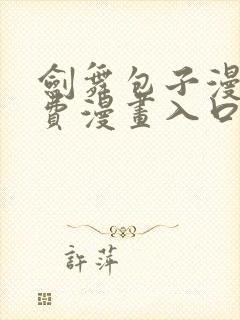 劍舞包子漫
費漫畫入口
許萍